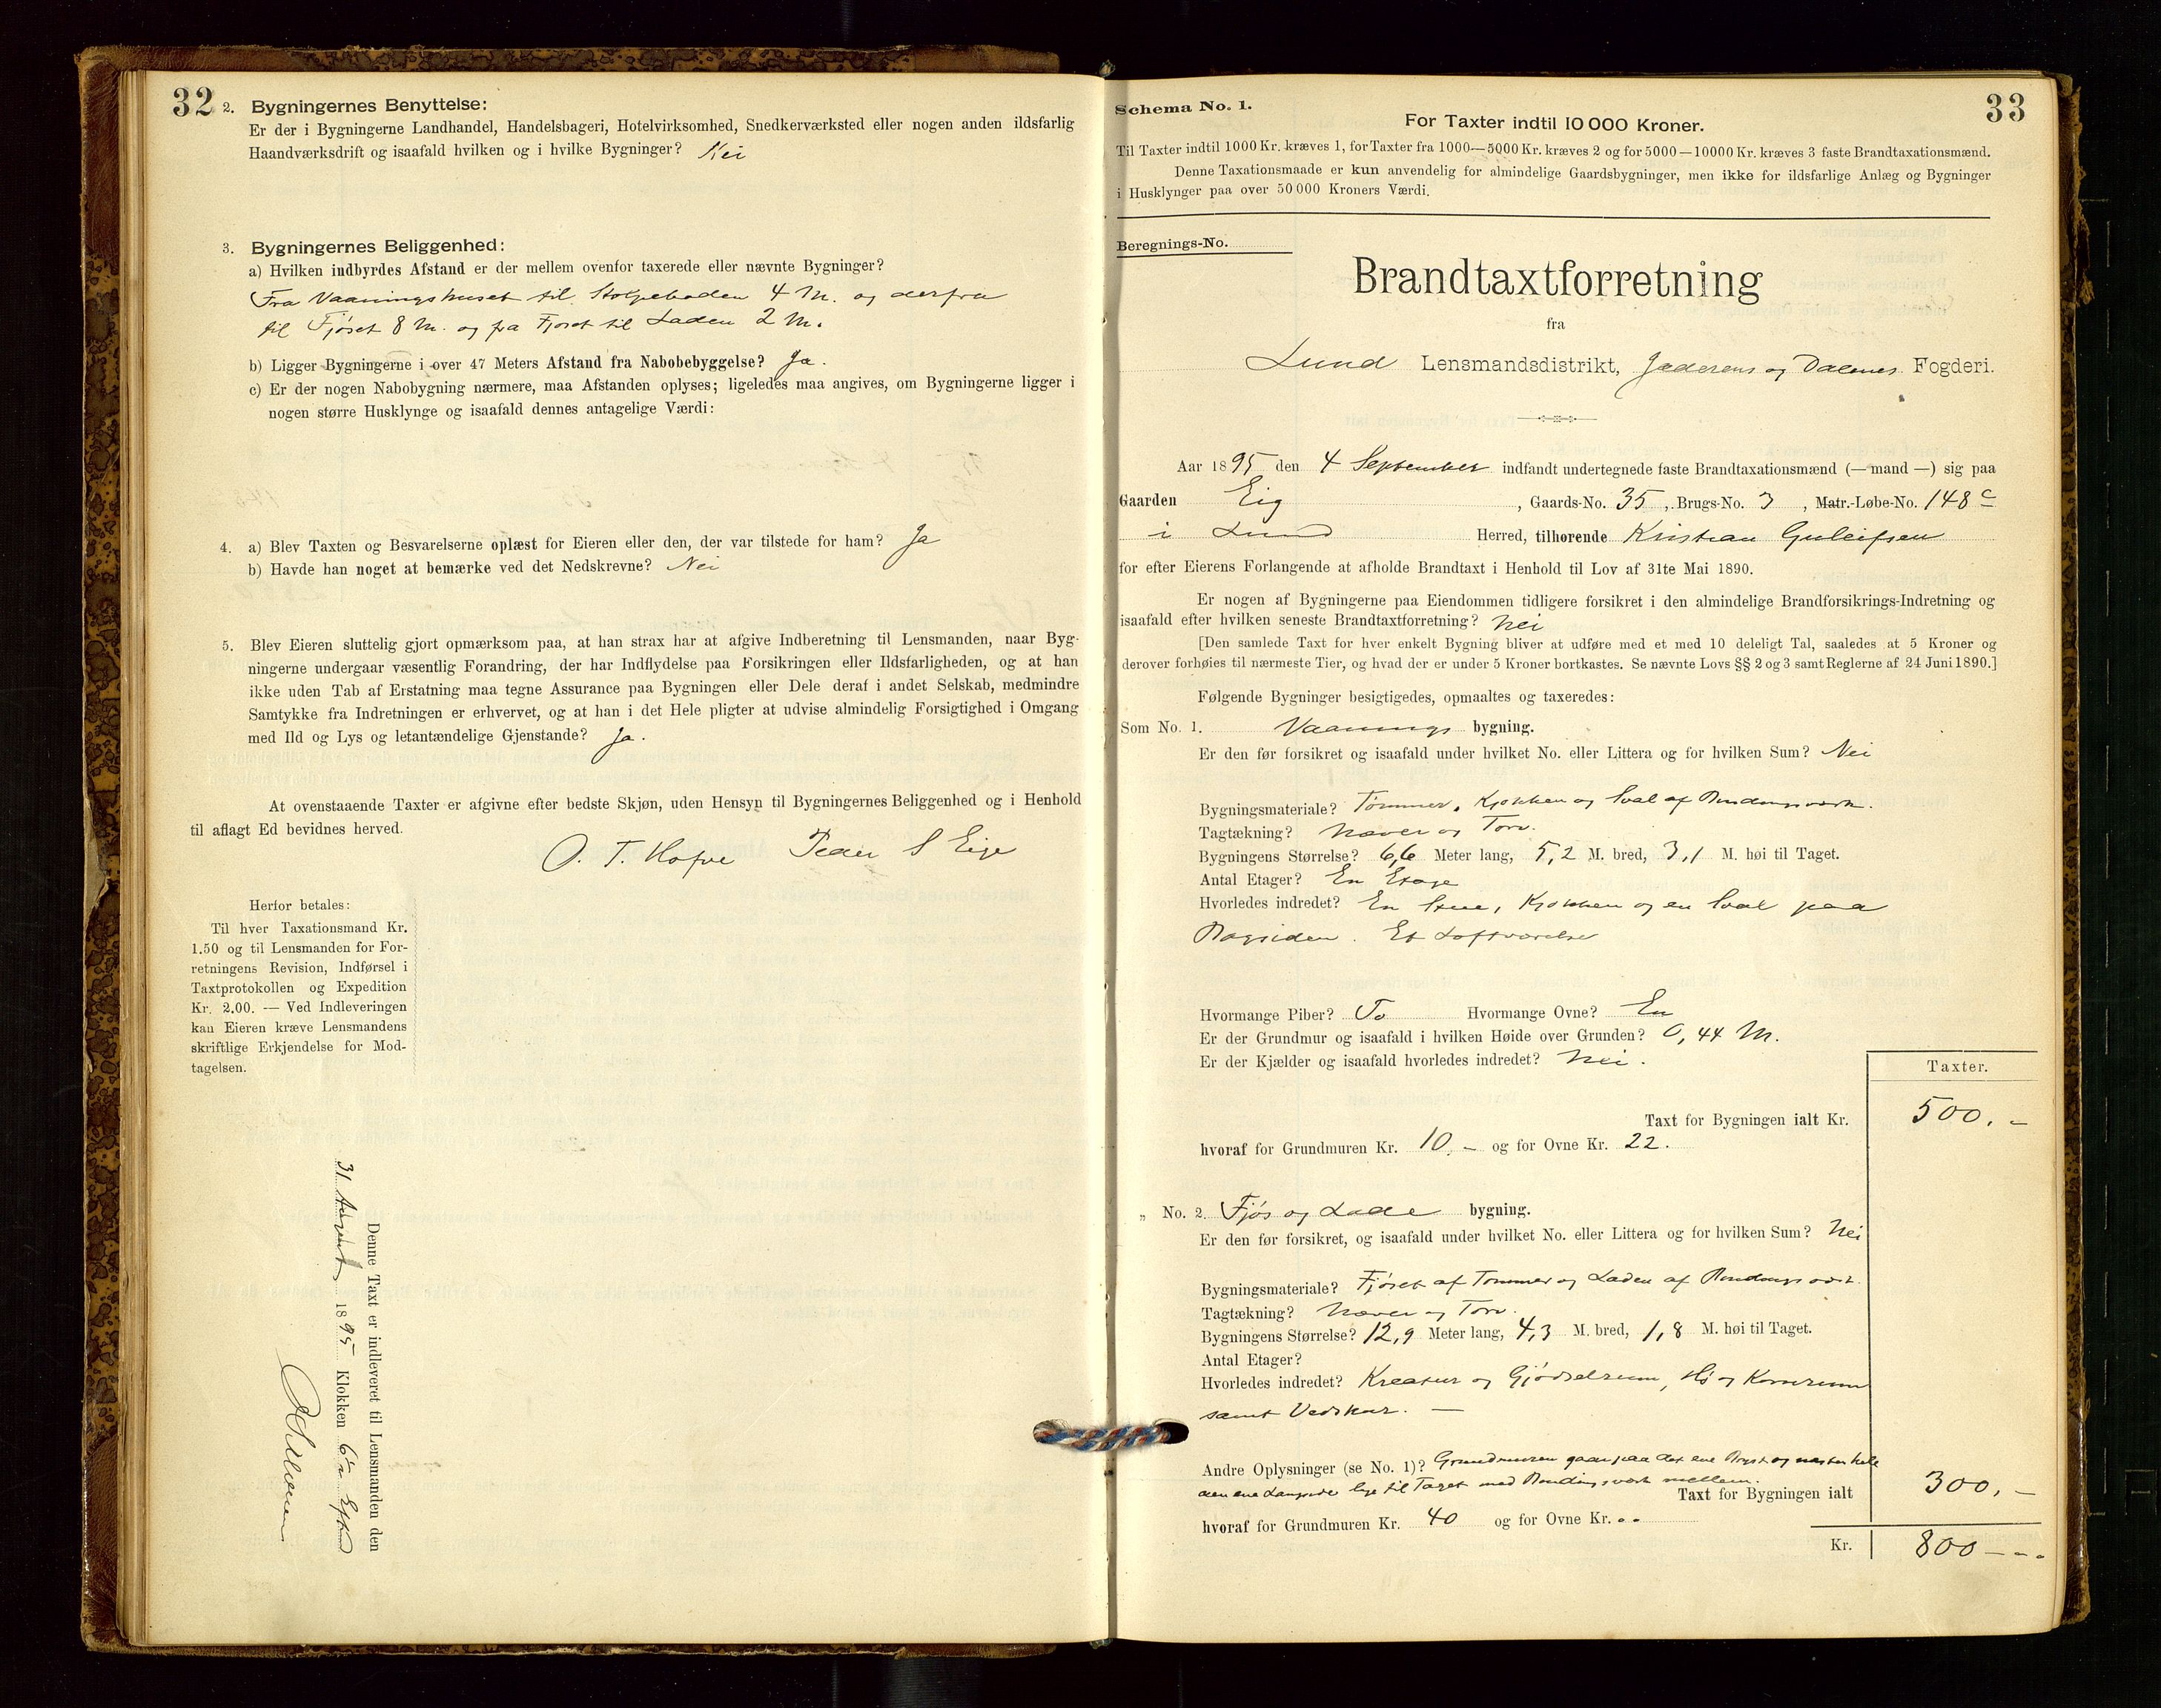 32
2. Bygningernes Benyttelse:
Er der i Bygningerne Landhandel, Handelsbageri, Hotelvirksomhed, Snedkerværksted eller nogen anden ildsfarlig
Haandværksdrift og isaafald hvilken og i hvilke Bygninger? Nei
3. Bygningernes Beliggenhed:
a) Hvilken indbyrdes Afstand er der mellem ovenfor taxerede eller nævnte Bygninger?
Fra Vaaningshuset til Stolpeboden 4 M. og derfra
til Fjöset 8 M. og fra Fjöset til Laden 2 M.
b) Ligger Bygningerne i over 47 Meters Afstand fra Nabobebyggelse? Ja.
c) Er der nogen Nabobygning nærmere, maa Afstanden oplyses; ligeledes maa angives, om Bygningerne ligger i
nogen større Husklynge og isaafald dennes antagelige Værdi:
4. a) Blev Taxten og Besvarelserne oplæst for Eieren eller den, der var tilstede for ham? Ja
b) Havde han noget at bemærke ved det Nedskrevne? Nei
5. Blev Eieren sluttelig gjort opmærksom paa, at han strax har at afgive Indberetning til Lensmanden, naar Byg-
ningerne undergaar væsentlig Forandring, der har Indflydelse paa Forsikringen eller Ildsfarligheden, og at han
ikke uden Tab af Erstatning maa tegne Assurance paa Bygningen eller Dele deraf i andet Selskab, medmindre
Samtykke fra Indretningen er erhvervet, og at han i det Hele pligter at udvise almindelig Forsigtighed i Omgang
med Ild og Lys og letantændelige Gjenstande? Ja.
At ovenstaaende Taxter er afgivne efter bedste Skjøn, uden Hensyn til Bygningernes Beliggenhed og i Henhold
til aflagt Ed bevidnes herved.
O. T. Hofve Peder S Eige
Herfor betales:
Til hver Taxationsmand Kr.
1.50 og til Lensmanden for For-
retningens Revision, Indførsel i
Taxtprotokollen og Expedition
Kr. 2.00. — Ved Indleveringen
kan Eieren kræve Lensmandens
skriftlige Erkjendelse for Mod-
tagelsen.
Denne Taxt er indleveret til Lensmanden den
31 August 1895 Klokken 6 Eftm
33
Schema No. 1.
For Taxter indtil 10 000 Kroner.
Til Taxter indtil 1000 Kr. kræves 1, for Taxter fra 1000—5000 Kr. kræves 2 og for 5000—10000 Kr. kræves 3 faste Brandtaxationsmænd.
Denne Taxationsmaade er kun anvendelig for almindelige Gaardsbygninger, men ikke for ildsfarlige Anlæg og Bygninger
i Husklynger paa over 50 000 Kroners Værdi.
Beregnings-No.
Brandtaxtforretning
fra
Lund Lensmandsdistrikt, Jæderens og Dalernes Fogderi.
Aar 1895 den 4 September indfandt undertegnede faste Brandtaxationsmænd (— mand —) sig paa
Gaarden Eig, Gaards-No. 35, Brugs-No. 3, Matr.-Løbe-No. 148 c
i Lund Herred, tilhørende Kristian Guleifsen
for efter Eierens Forlangende at afholde Brandtaxt i Henhold til Lov af 31te Mai 1890.
Er nogen af Bygningerne paa Eiendommen tidligere forsikret i den almindelige Brandforsikrings-Indretning og
isaafald efter hvilken seneste Brandtaxtforretning? Nei
[Den samlede Taxt for hver enkelt Bygning bliver at udføre med et med 10 deleligt Tal, saaledes at 5 Kroner og
derover forhøies til nærmeste Tier, og hvad der er under 5 Kroner bortkastes. Se nævnte Lovs §§ 2 og 3 samt Reglerne af 24 Juni 1890.]
Følgende Bygninger besigtigedes, opmaaltes og taxeredes:
Som No. 1. Vaanings bygning.
Er den før forsikret og isaafald under hvilket No. eller Littera og for hvilken Sum? Nei
Bygningsmateriale? Tömmer, Kjökken og Sval af Bindingsværk.
Tagtækning? Næver og Torv.
Bygningens Størrelse? 6,6 Meter lang, 5,2 M. bred, 3,1 M. høi til Taget.
Antal Etager? En Etage
Hvorledes indredet? En Stue, Kjökken og en Sval paa
Bagsiden. Et Loftværelse
Hvormange Piber? To Hvormange Ovne? En
Er der Grundmur og isaafald i hvilken Høide over Grunden? 0,44 M.
Er der Kjælder og isaafald hvorledes indredet? Nei.
Taxter.
Taxt for Bygningen ialt Kr. 500.-
hvoraf for Grundmuren Kr. 10.- og for Ovne Kr. 22.
„ No. 2. Fjös og Lade bygning.
Er den før forsikret, og isaafald under hvilket No. eller Littera og for hvilken Sum? Nei
Bygningsmateriale? Fjöset af Tömmer og Laden af Bindingsværk.
Tagtækning? Næver og Torv.
Bygningens Størrelse? 12,9 Meter lang, 4,3 M. bred, 1,8 M. høi til Taget.
Antal Etager?
Hvorledes indredet? Kreatur og Gjödselrum, Hö og Kornrum
samt Vedskur. —
Andre Oplysninger (se No. 1)? Grundmuren gaar paa det ene Bryst og næsten hele
den ene Langside lige til Taget med Bindingsværk mellem.
Taxt for Bygningen ialt 300.-
hvoraf for Grundmuren Kr. 40 og for Ovne Kr. „ „
Kr. 800 - - -